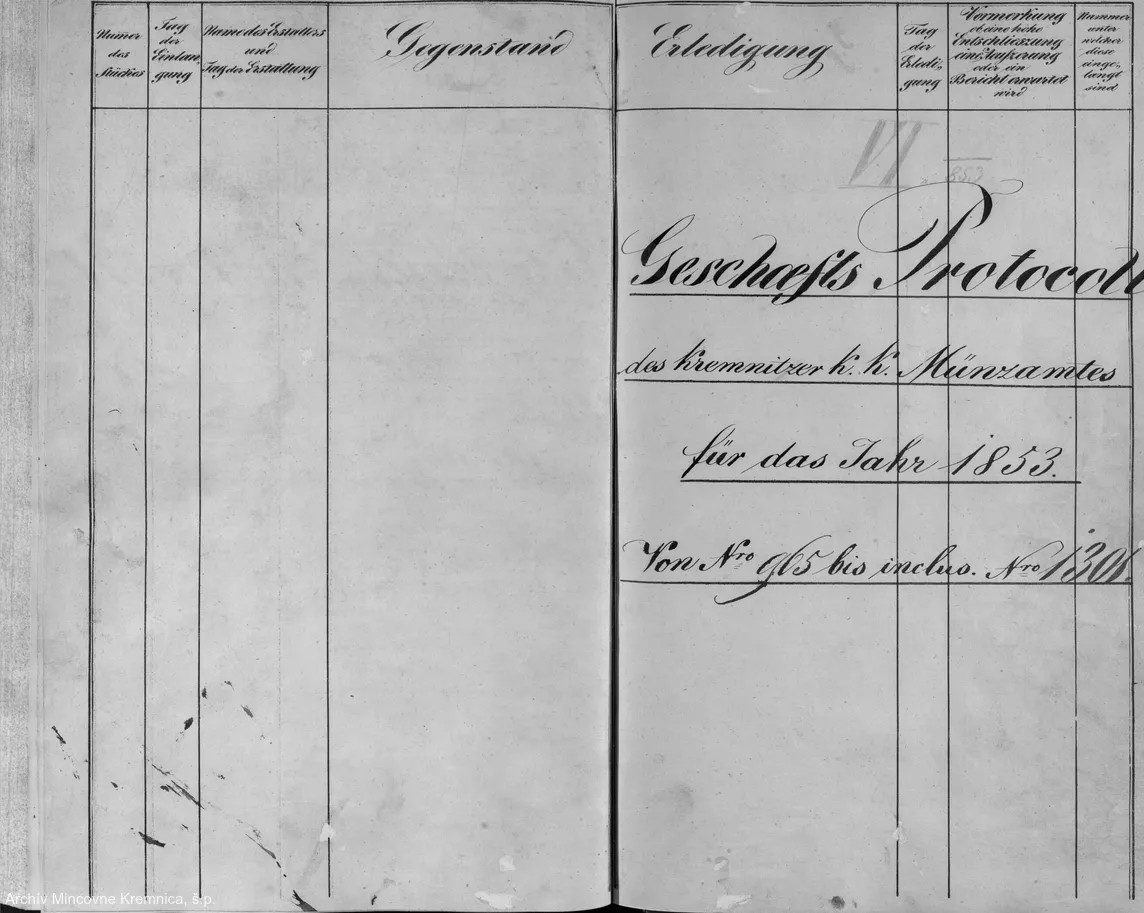 Numer
des
Stückes
Tag
der
Einlan-
gung
Name des Erstatters
und
Tag der Erstattung
Gegenstand
Erledigung
Tag
der
Erledi-
gung
Vormerkung
ob eine hohe
Entschlieszung
eine Äußerung
oder ein
Bericht erwartet
wird
Nummer
unter
welcher
diese
einge-
langt
sind
VI
853
Geschæfts Protocoll
des Kremnitzer k. k. Münzamtes
für das Jahr 1853.
Von Nro 965 bis inclus. Nro
Archív Mincovne Kremnica, š.p.